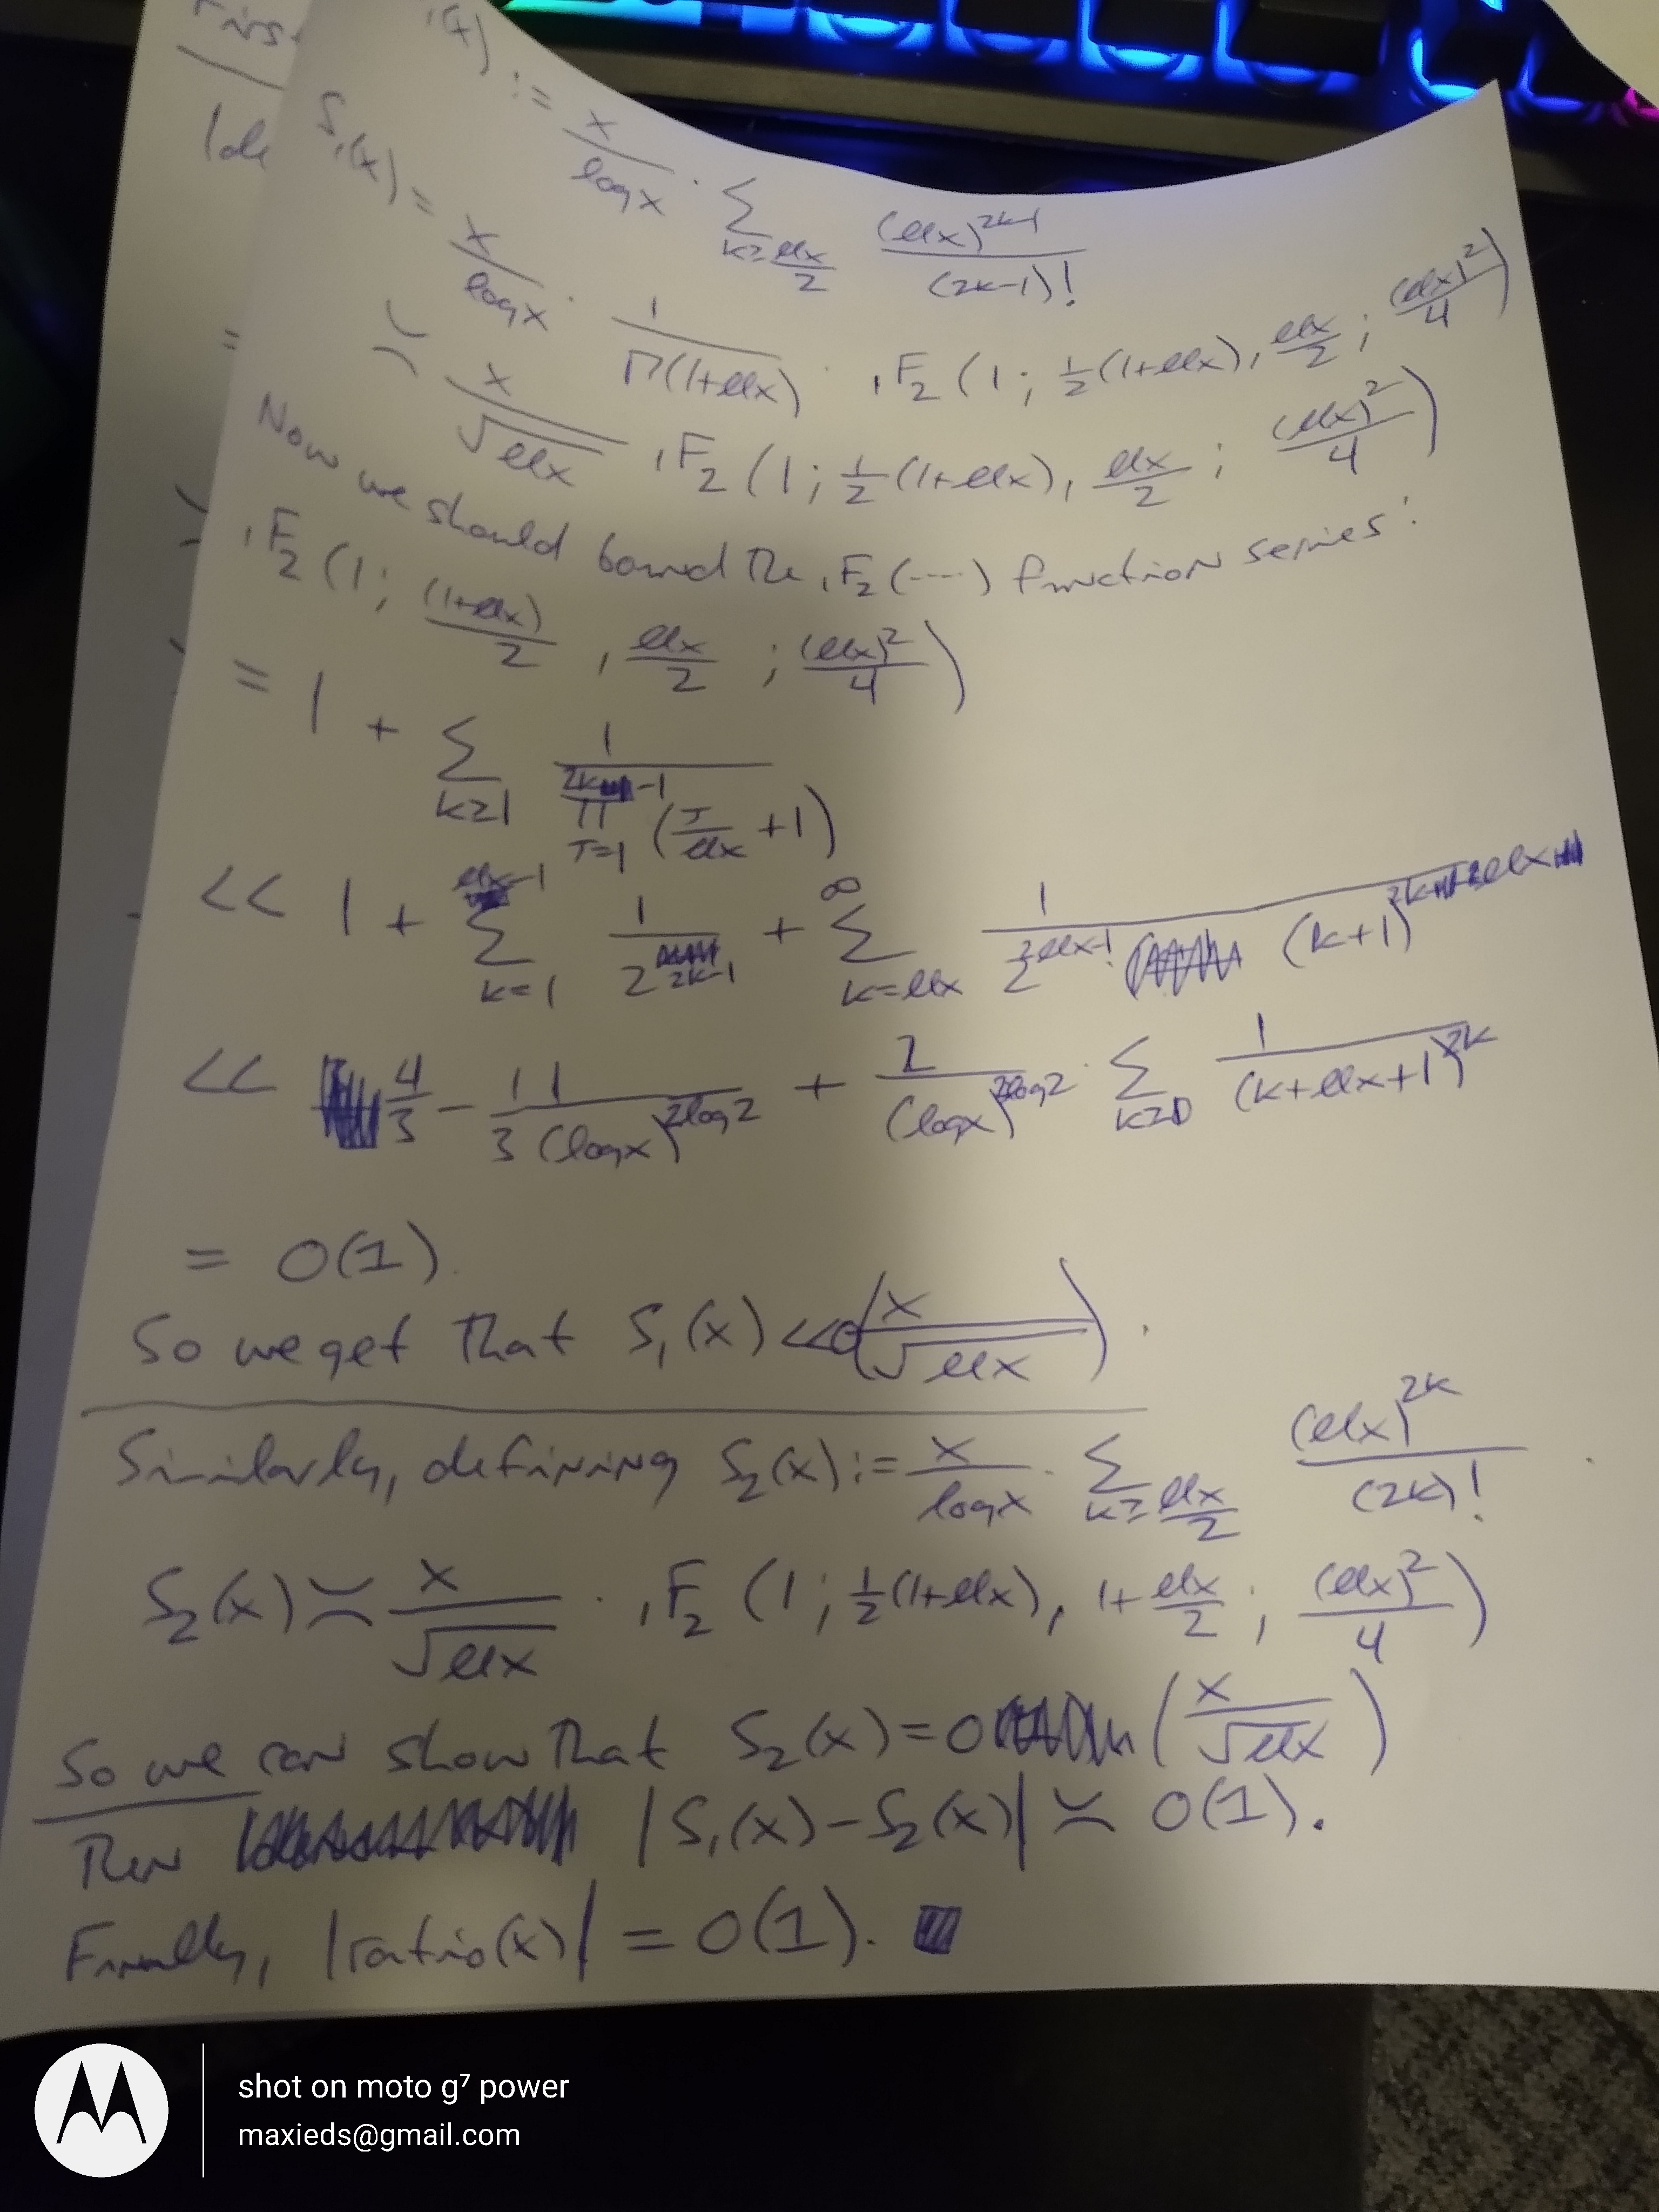 Firs
Ide
=
(x) := x/log x · Σ_{k≥ llx/2} (llx)^{2k-1}/(2k-1)!
S₁(x) = x/log x · 1/Γ(1+llx) · ₁F₂(1; ½(1+llx), llx/2; (llx)²/4)
≍ x/√llx ₁F₂(1; ½(1+llx), llx/2; (llx)²/4)
Now we should bound the ₁F₂(----) function series:
₁F₂(1; (1+llx)/2, llx/2; (llx)²/4)
= 1 + Σ_{k≥1} 1/∏_{J=1}^{2k-1} (J/llx + 1)
<< 1 + Σ_{k=1}^{llx-1} 1/2^{2k-1} + Σ_{k=llx}^{∞} 1/2^{2llx-1} (k+1)
<< 4/3 - 1/3 1/(log x)^{2log2} + 2/(log x)^{2log2} · Σ_{k≥0} 1/(k+llx+1)^{2k}
= O(1).
So we get that S₁(x) << O(x/√llx).
Similarly, defining S₂(x) := x/log x · Σ_{k≥ llx/2} (llx)^{2k}/(2k)!.
S₂(x) ≍ x/√llx · ₁F₂(1; ½(1+llx), 1+llx/2; (llx)²/4)
So we can show that S₂(x) = O(x/√llx)
Then |S₁(x)-S₂(x)| ≍ O(1).
Finally, |ratio(x)| = O(1).
shot on moto g⁷ power
maxieds@gmail.com